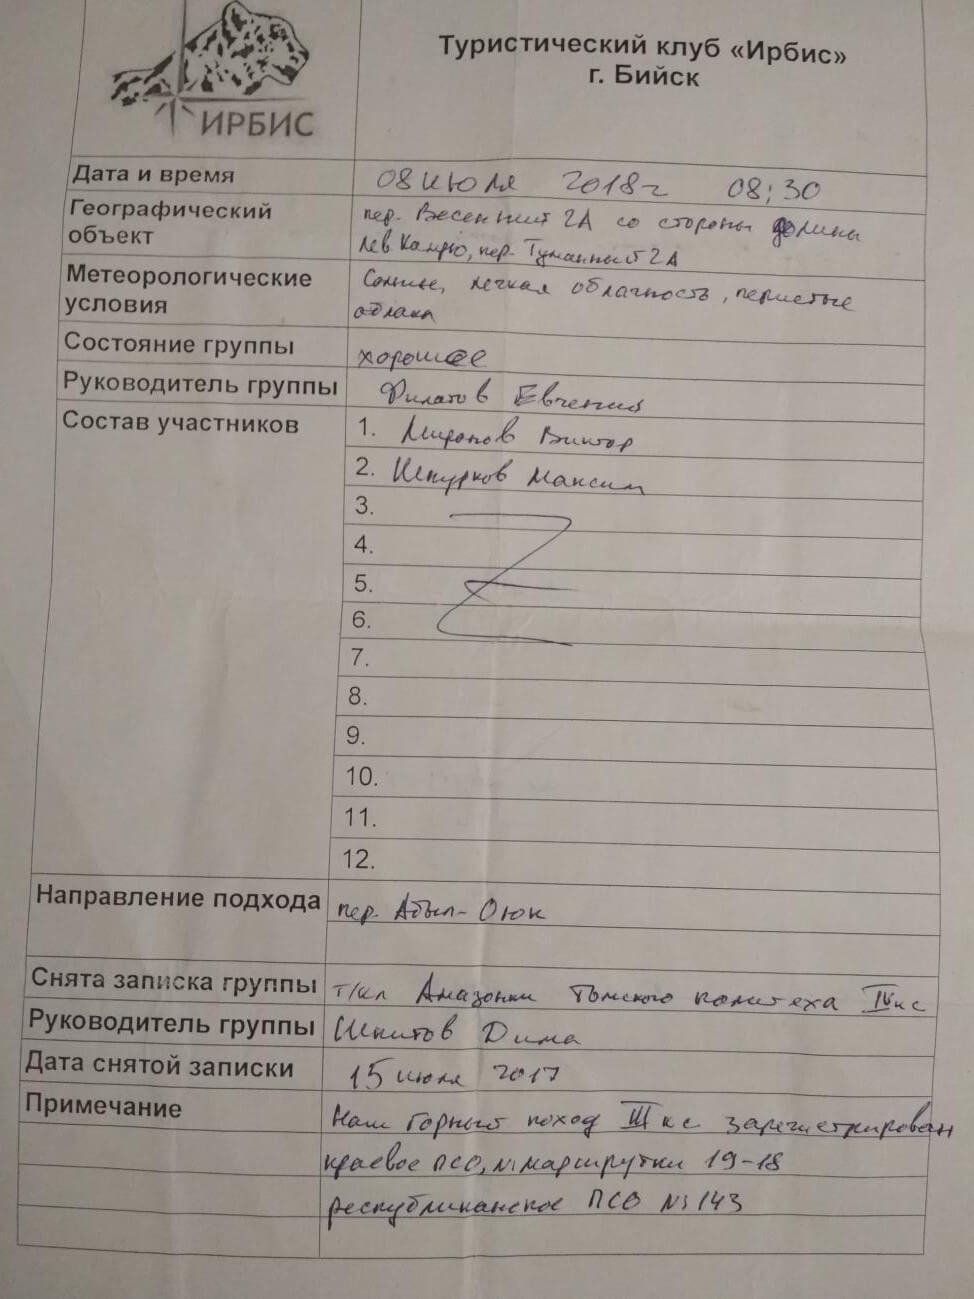 ИРБИС
Туристический клуб «Ирбис»
г. Бийск
Дата и время
08 июля 2018г 08:30
Географический
объект
пер. Весенний 2А со стороны долины
Лев Камрю, пер. Туманный 2А
Метеорологические
условия
Солнце, легкая облачность, перистые
облака
Состояние группы
хорошее
Руководитель группы
Филатов Евгений
Состав участников
1. Миронов Виктор
2. Шкурков Максим
3.
4.
5.
6.
7.
8.
9.
10.
11.
12.
Направление подхода
пер. Абыл-Оюк
Снята записка группы
т/кл Амазонки Томского политеха IV кс
Руководитель группы
Шкитов Дима
Дата снятой записки
15 июля 2017
Примечание
Наш Горный поход III кс зарегистрирован
краевое ПСО, № маршрутки 19-18
республиканское ПСО № 143